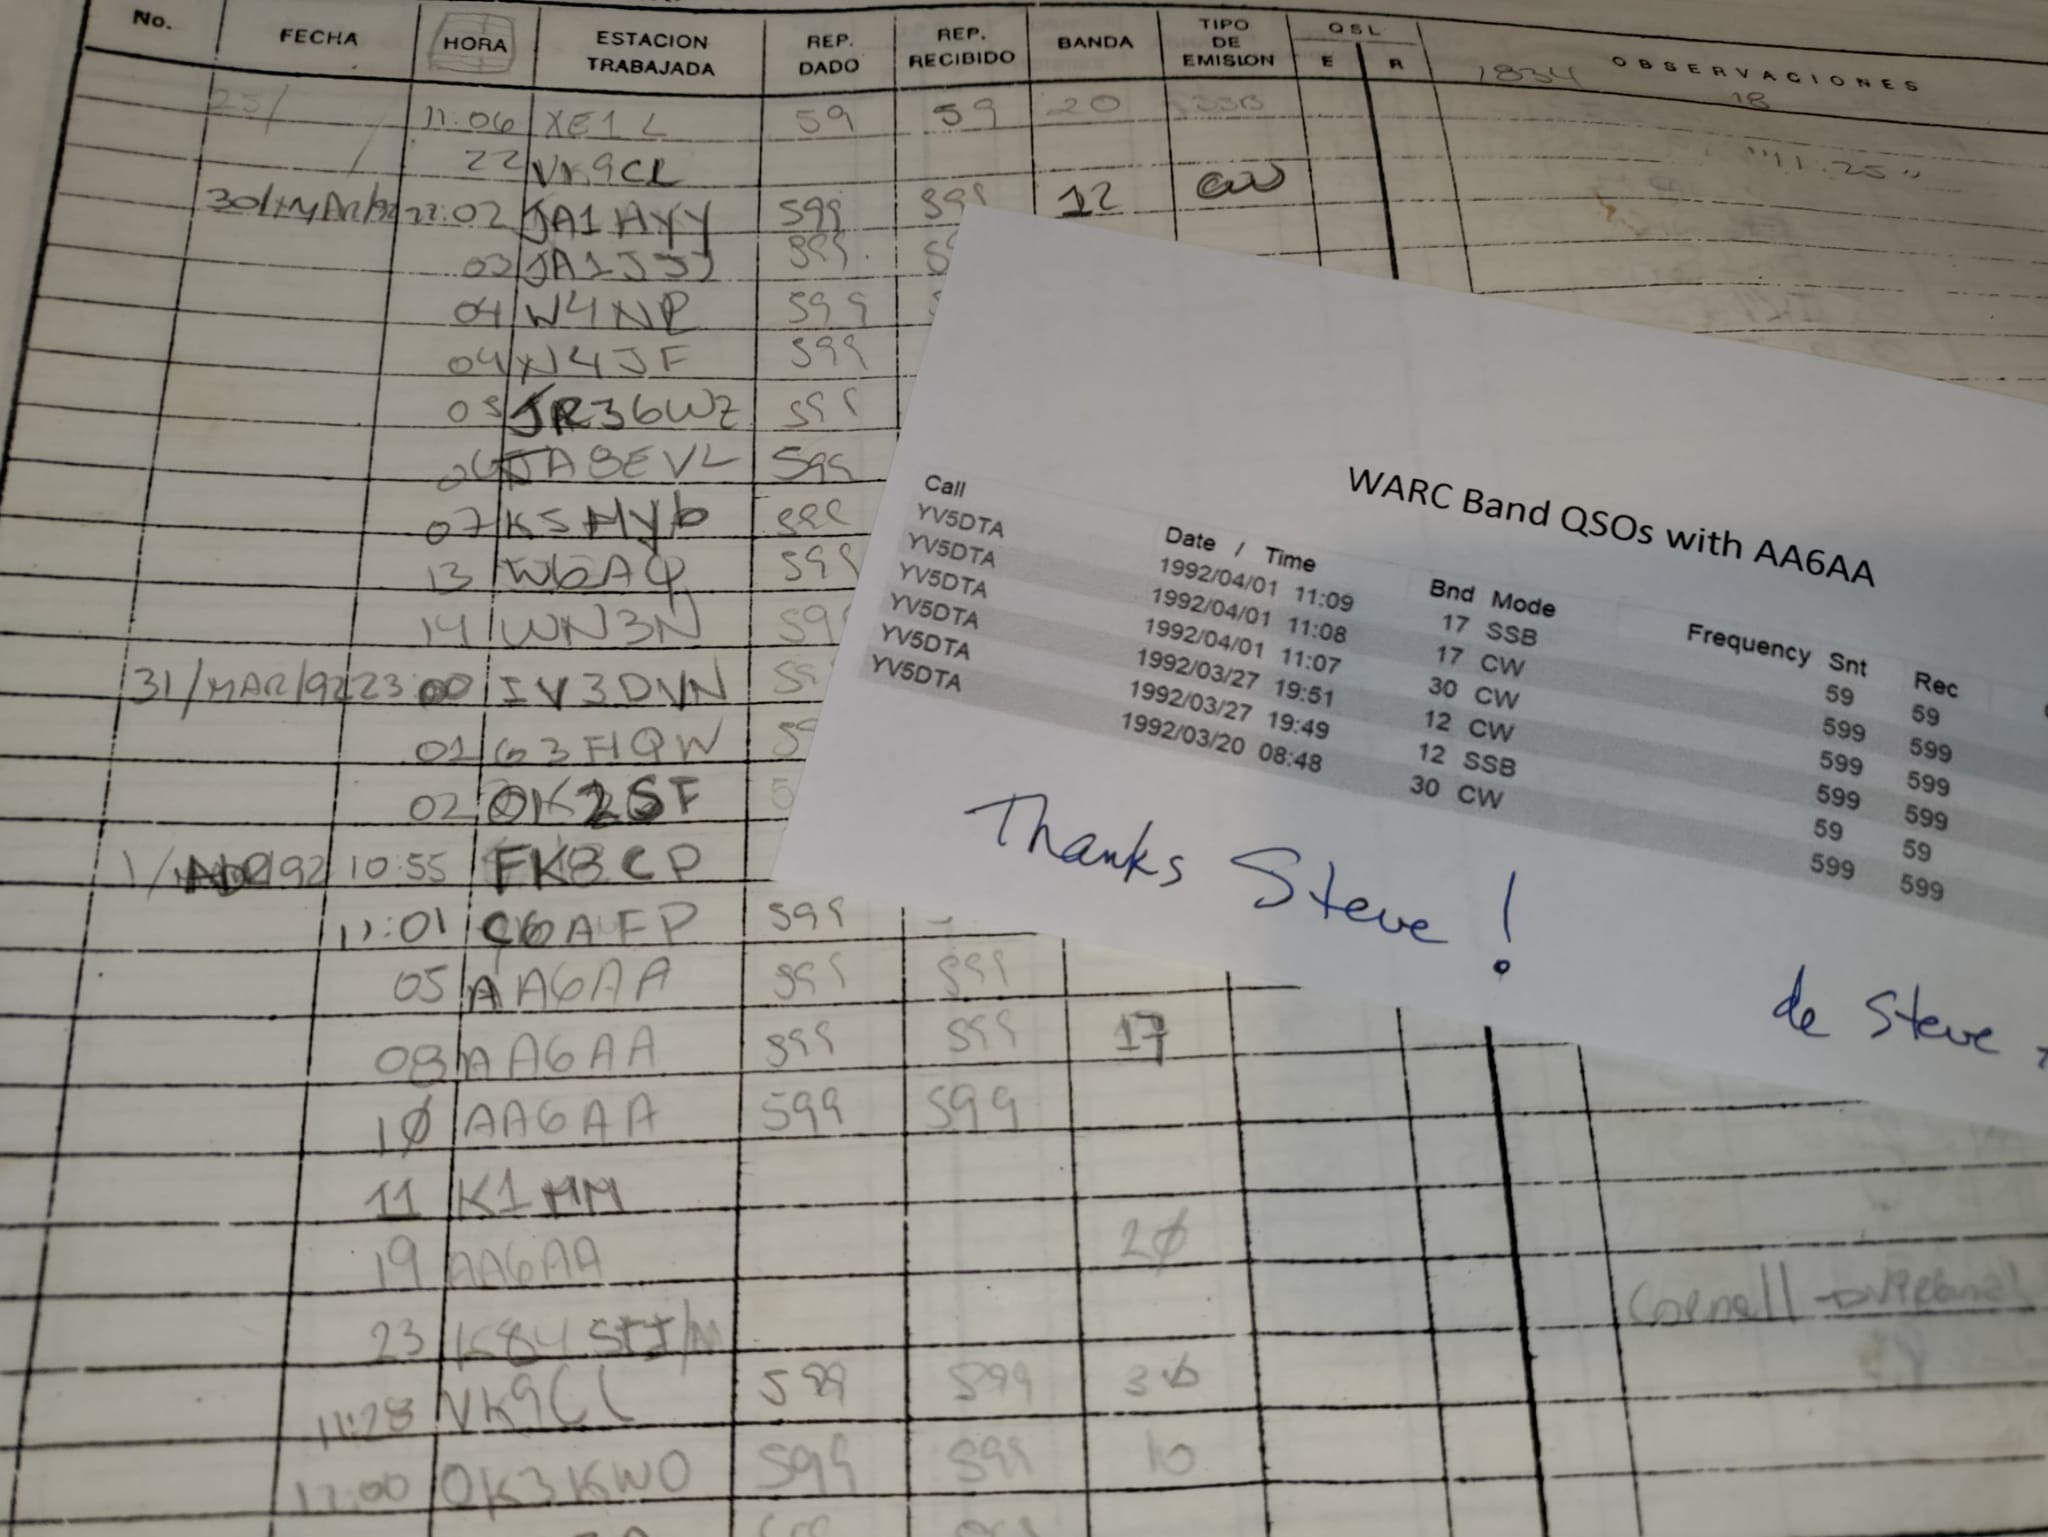 No. FECHA HORA ESTACION TRABAJADA REP. DADO REP. RECIBIDO BANDA TIPO DE EMISION QSL E R OBSERVACIONES
1834 18
25/ 11:06 XE1L 59 59 20 SSB
22 VK9CL "11.25"
30/MAR/92 22:02 JA1HYY 599 599 12 CW
03 JA1JJJ 599
04 W4NP 599
04 N4JF 599
05 JR36WZ 599
06 JA8EVL 599
07 K5MYb 599
13 W6AQ 599
14 WN3N 599
31/MAR/92 23:00 IV3DVN
01 G3HQW
02 OK2SF
1/APR/92 10:55 FK8CP
11:01 C6AFP 599
05 AA6AA 599 599
08 AA6AA 599 599 17
1Ø AA6AA 599 599
11 K1MM
19 AA6AA 2Ø
23 K84SII/M Cornell
11:28 VK9CL 599 599 3Ø
12:00 OK3KWO 599 599 10
WARC Band QSOs with AA6AA
Call Date / Time Bnd Mode Frequency Snt Rec
YV5DTA 1992/04/01 11:09 17 SSB 59 59
YV5DTA 1992/04/01 11:08 17 CW 599 599
YV5DTA 1992/04/01 11:07 30 CW 599 599
YV5DTA 1992/03/27 19:51 12 CW 599 599
YV5DTA 1992/03/27 19:49 12 SSB 59 59
YV5DTA 1992/03/20 08:48 30 CW 599 599
Thanks Steve!
de Steve